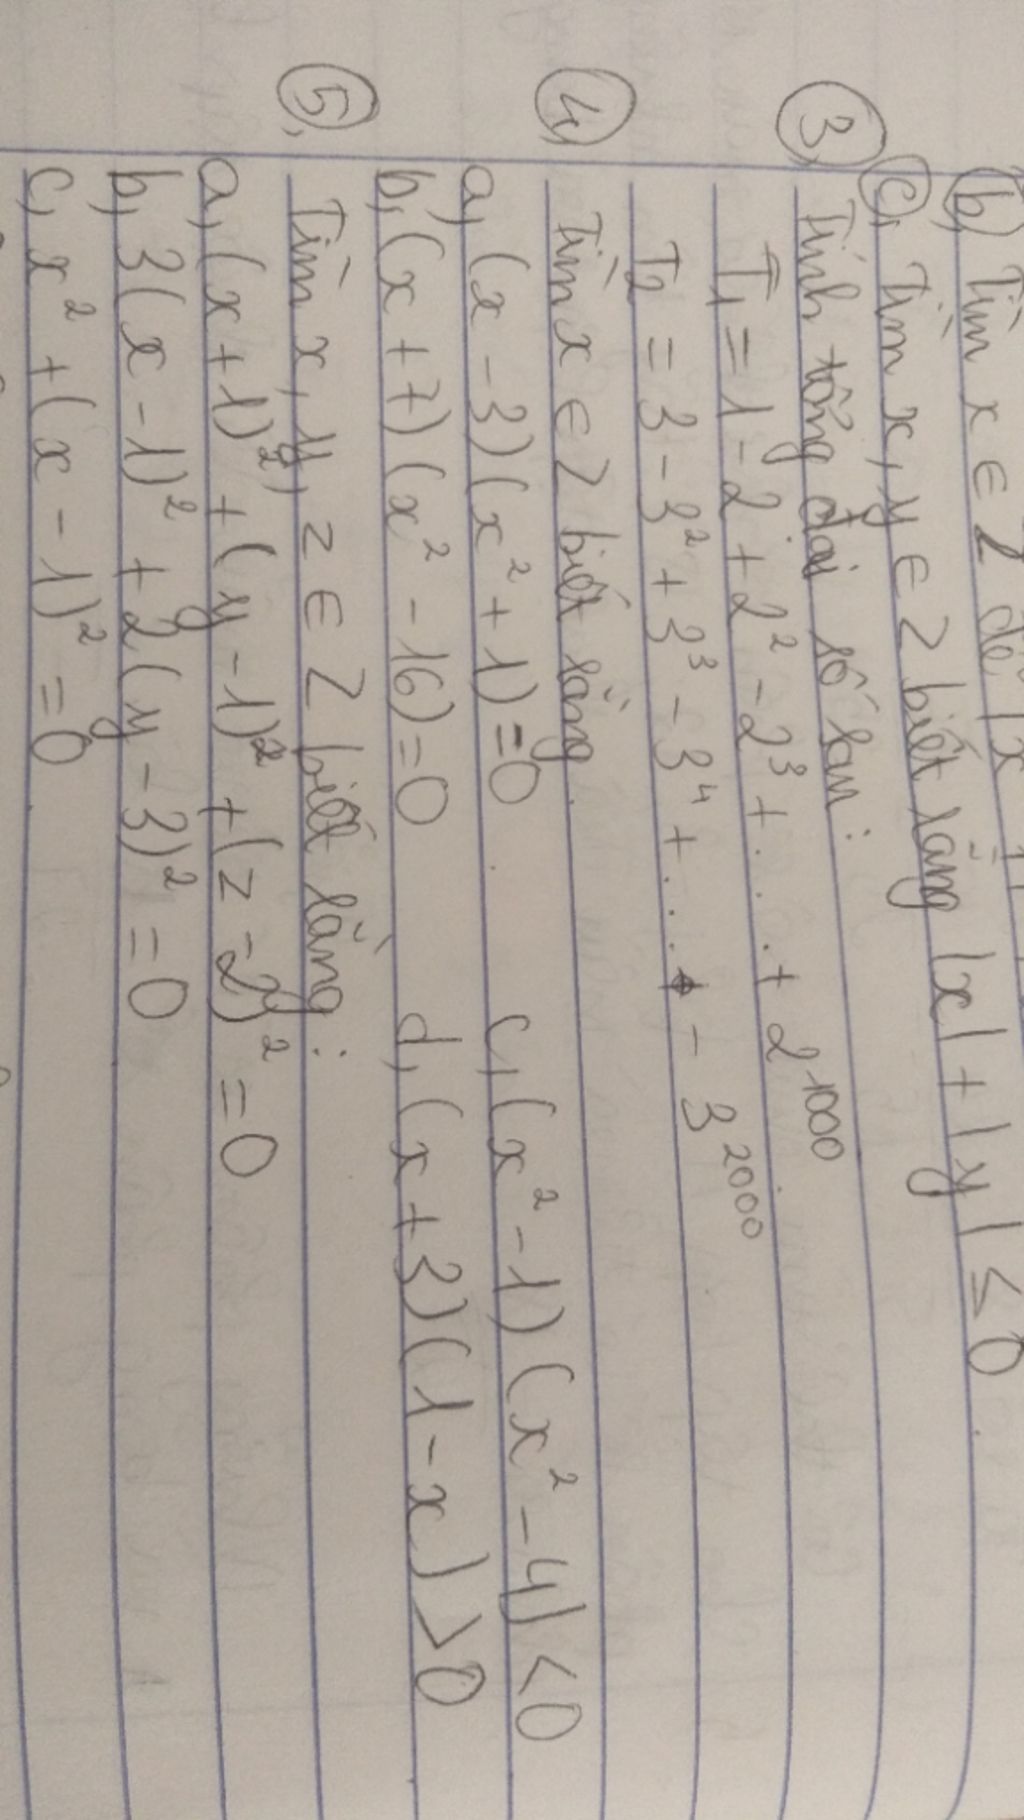 b, Tìm x ∈ Z để |x
c, Tìm x, y ∈ Z biết rằng |x| + |y| ≤ 0
③, Tính tổng đại số sau:
T₁ = 1 - 2 + 2² - 2³ + ... + 2¹⁰⁰⁰
T₂ = 3 - 3² + 3³ - 3⁴ + ... - 3²⁰⁰⁰
④, Tìm x ∈ Z biết rằng.
a, (x - 3)(x² + 1) = 0 c, (x² - 1)(x² - 4) < 0
b, (x + 7)(x² - 16) = 0 d, (x + 3)(1 - x) > 0
⑤, Tìm x, y, z ∈ Z biết rằng:
a, (x + 1)² + (y - 1)² + (z - 2)² = 0
b, 3(x - 1)² + 2(y - 3)² = 0
c, x² + (x - 1)² = 0